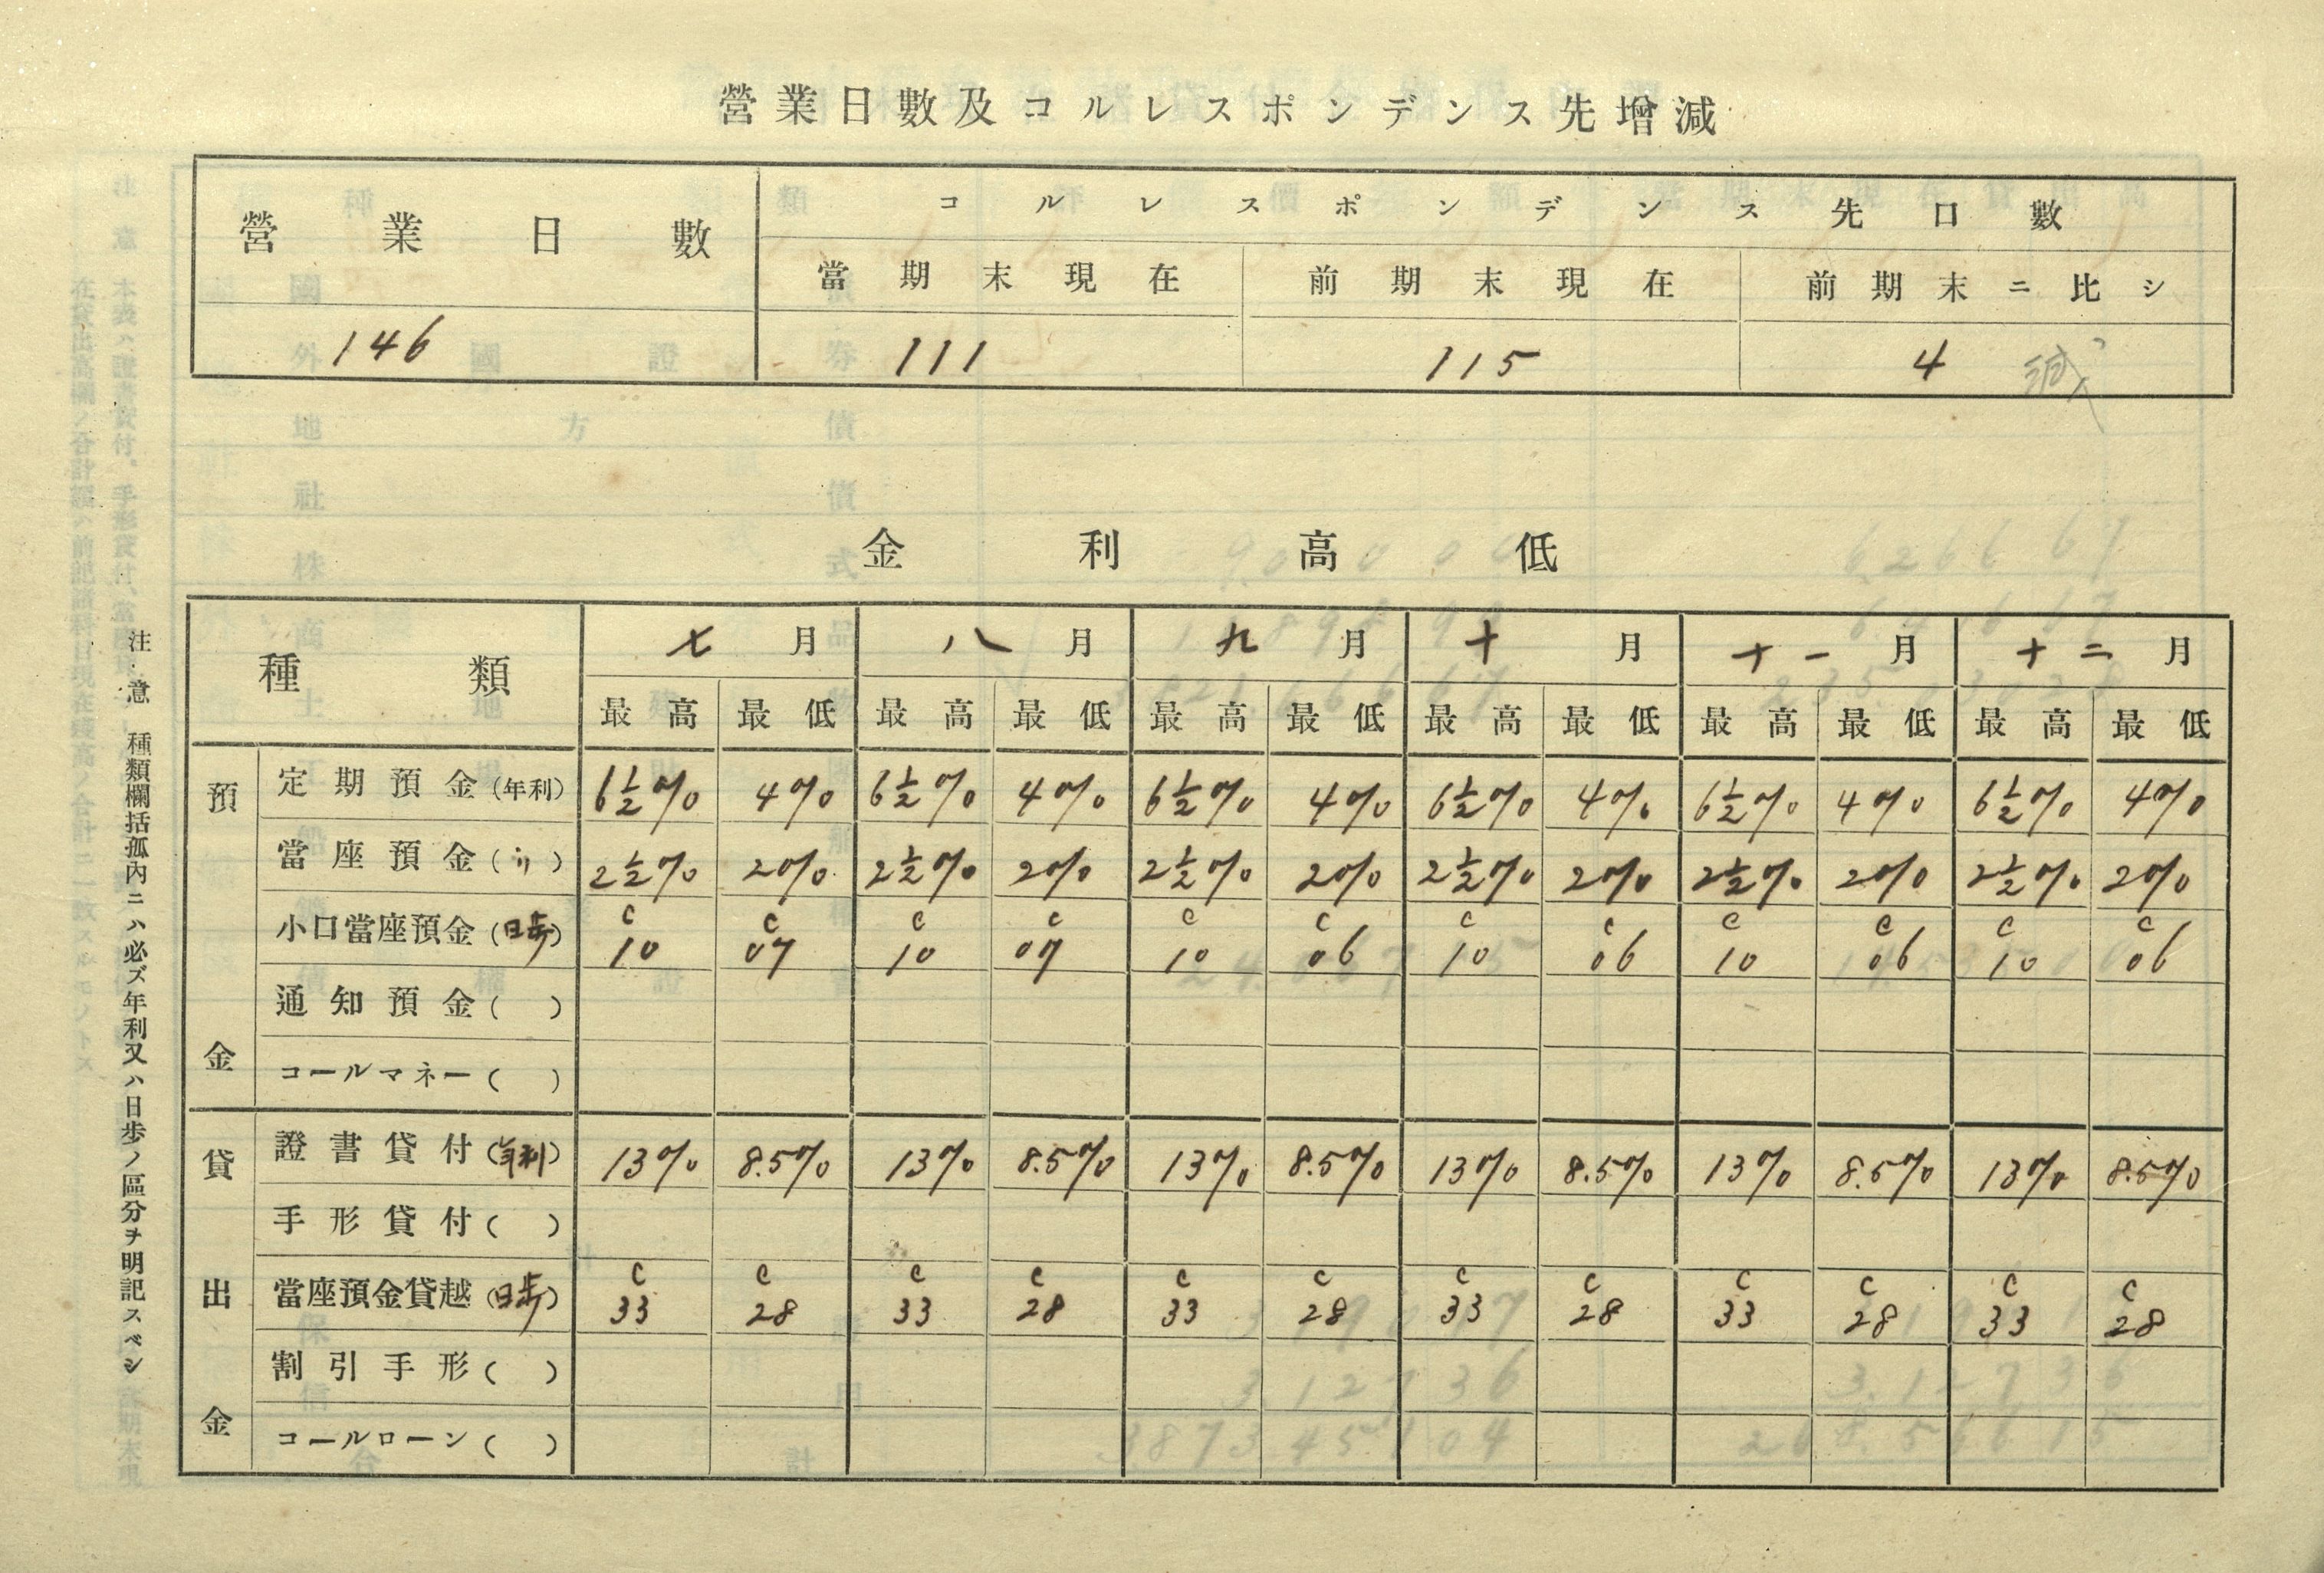 營業日數及コルレスポンデンス先增減
營業日數 コルレスポンデンス先口數
當期末現在 前期末現在 前期末ニ比シ
146 111 115 4 減
金利高低
種類 七月 八月 九月 十月 十一月 十二月
最高 最低 最高 最低 最高 最低 最高 最低 最高 最低 最高 最低
預金
定期預金(年利) 6½% 4% 6½% 4% 6½% 4% 6½% 4% 6½% 4% 6½% 4%
當座預金(〃) 2½% 2% 2½% 2% 2½% 2% 2½% 2% 2½% 2% 2½% 2%
小口當座預金(日歩) c10 c07 c10 c07 c10 c06 c10 c06 c10 c06 c10 c06
通知預金( )
コールマネー( )
貸出金
證書貸付(年利) 13% 8.5% 13% 8.5% 13% 8.5% 13% 8.5% 13% 8.5% 13% 8.5%
手形貸付( )
當座預金貸越(日歩) c33 c28 c33 c28 c33 c28 c33 c28 c33 c28 c33 c28
割引手形( )
コールローン( )
注意 種類欄括孤內ニハ必ズ年利又ハ日歩ノ區分ヲ明記スベシ